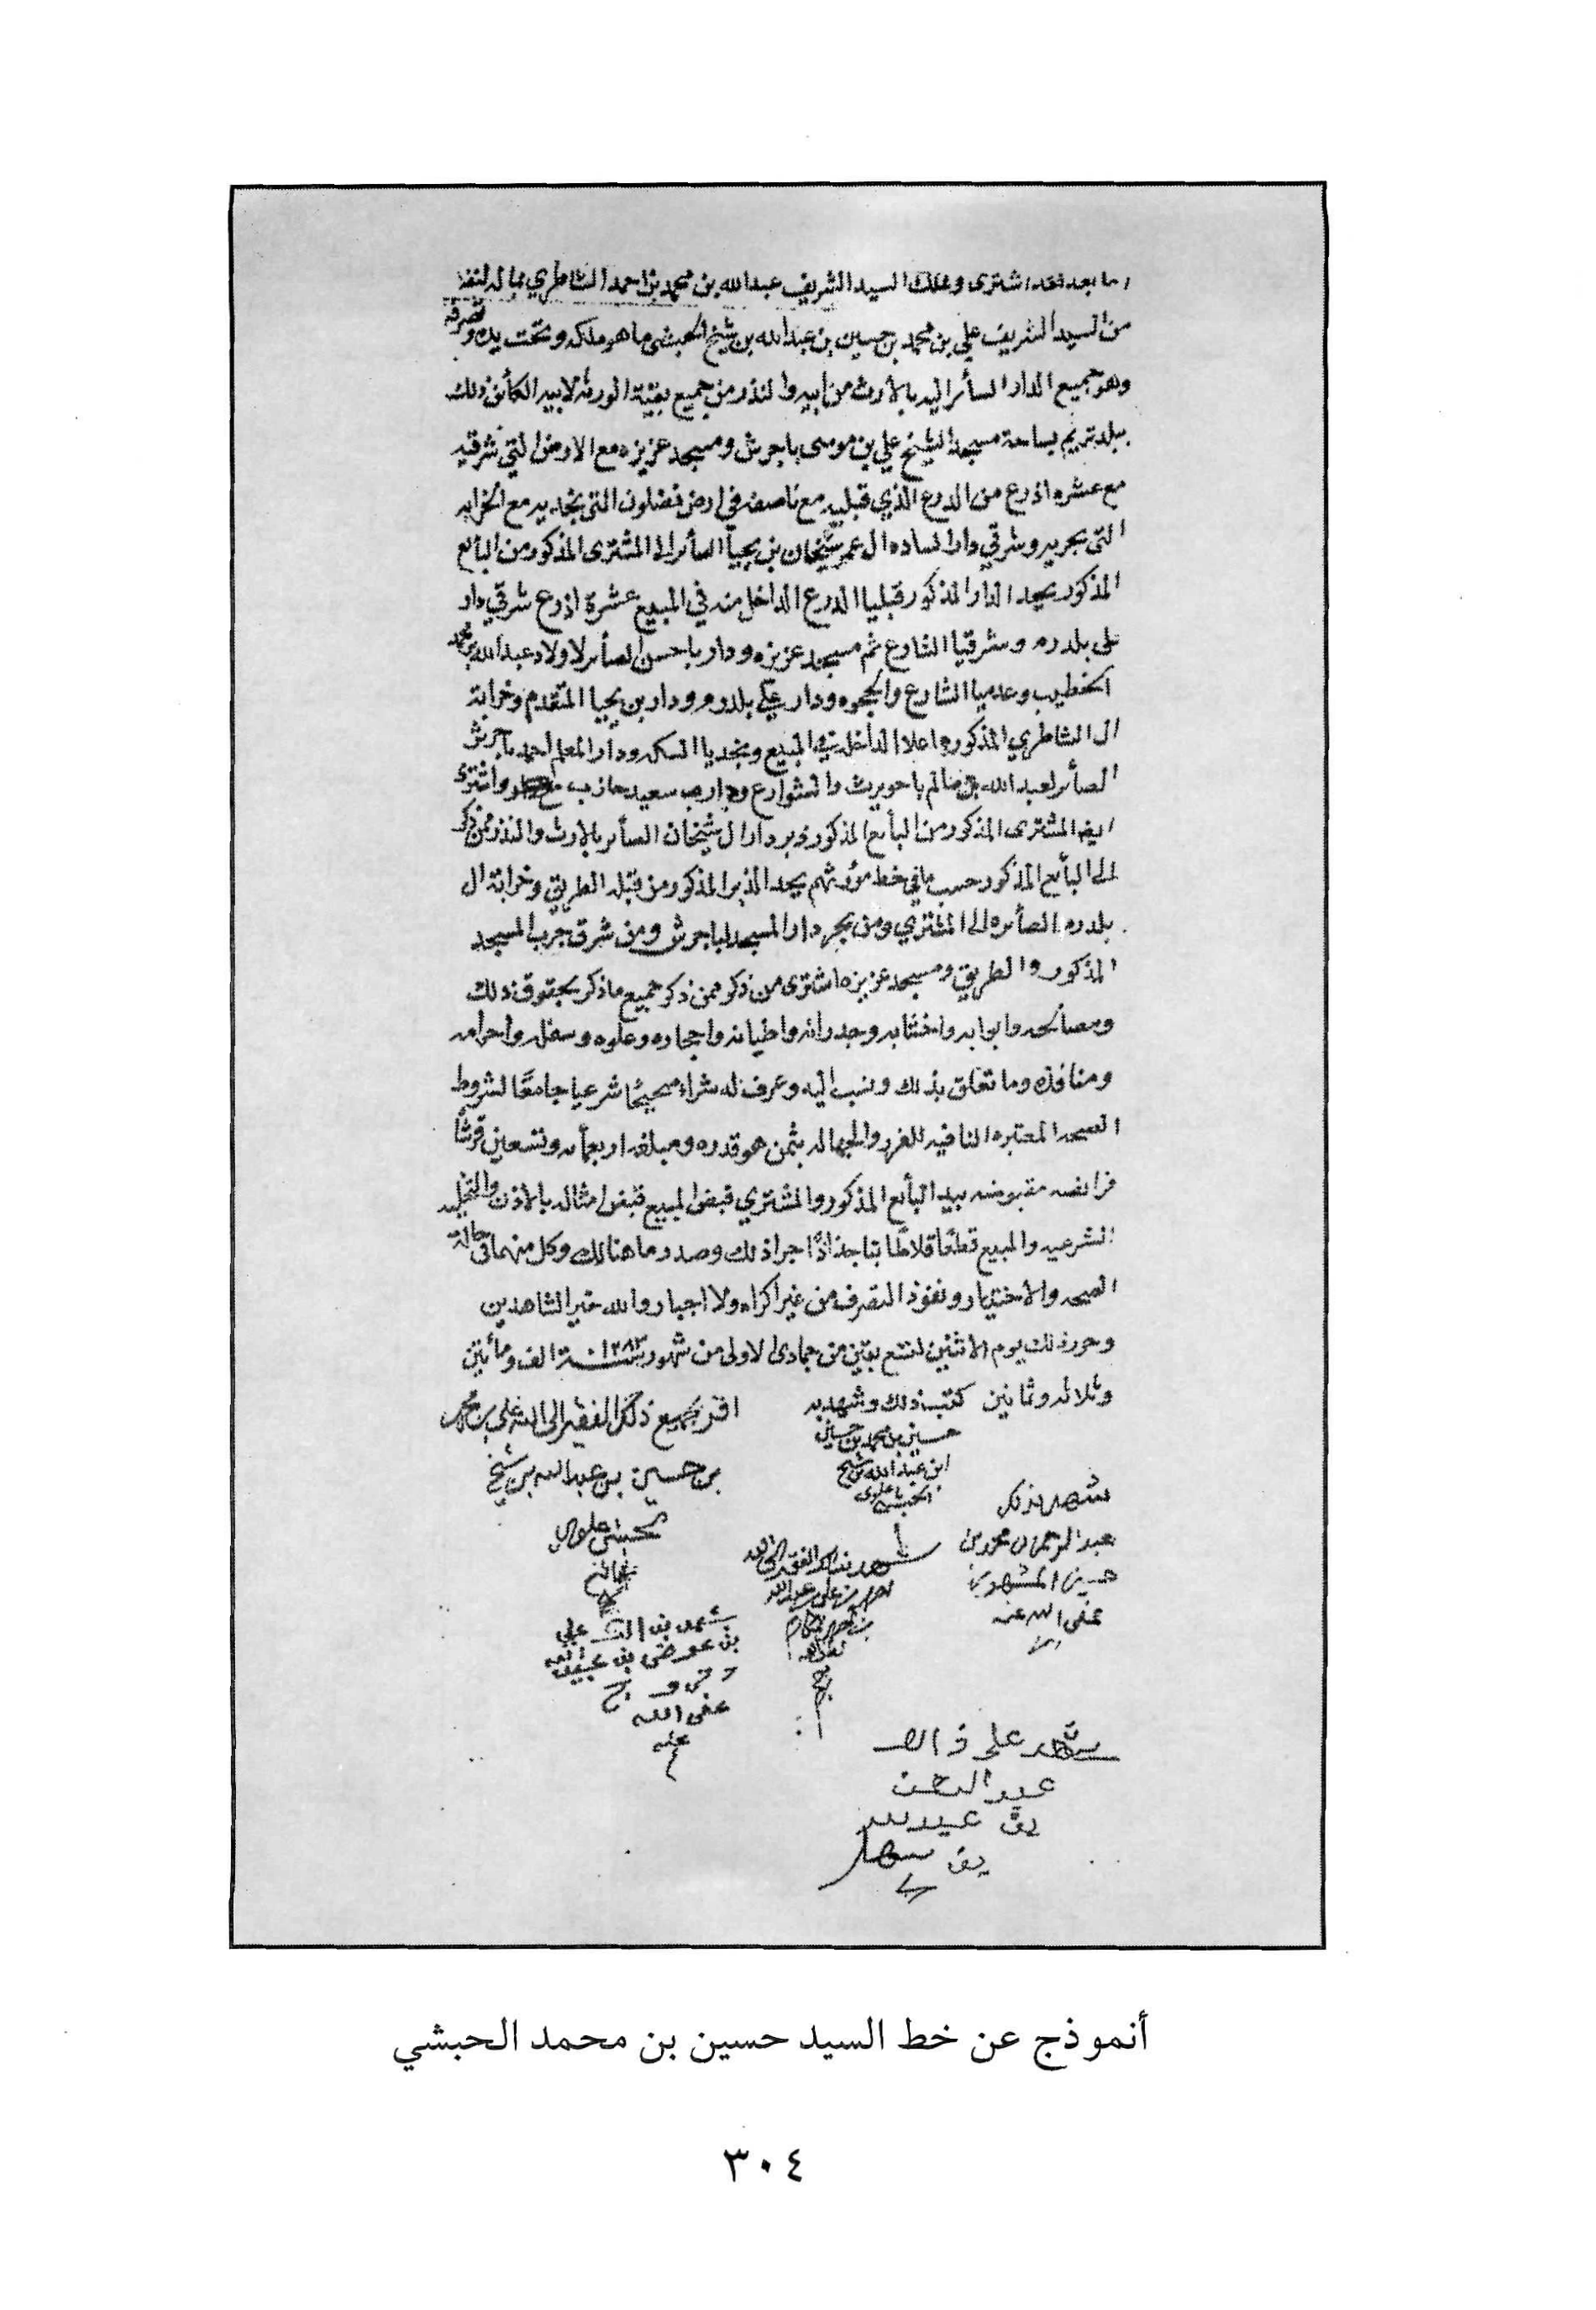 اما بعد فقد اشترى وتملك السيد الشريف عبدالله بن محمد بن احمد الشاطري بماله لنفسه
من السيد الشريف علي بن محمد بن حسين بن عبدالله بن شيخ الحبشي ما هو ملكه وتحت يده وتصرفه
وهو جميع الدار الصائر اليه بالارث من ابيه والنذر من جميع بقية الورثه لابيه الكائن ذلك
ببلد تريم بساحة مسجد الشيخ علي بن موسى باجرش ومسجد عزيزه مع الارض التي شرقيه
مع عشره اذرع من الدرع الذي قبليه مع ناصفه في ارض فضلون التي بنجديه مع الخرابه
التي بحريه وشرقي دار الساده ال عمر شيخان بن يحيا الصائر الى المشترى المذكور من البائع
المذكور يحد الدار المذكور قبليا الدرع الداخل منه في المبيع عشرة اذرع شرقي دار
علي بلدرم وشرقيا الشارع ثم مسجد عزيزه ودار باحسن الصائر لاولاد عبدالله بن محمد
الخطيب وعدميا الشارع والحجوه ودار علي بلدرم ودار بن يحيا المتقدم وخرابة
ال الشاطري المذكوره اعلا الداخلة في المبيع ونجديا السكه ودار المعلم احمد باجرش
الصائر لعبدالله بن سالم باحويرث والشوارع ودار سعيد واشترى
ايضا المشترى المذكور من البائع المذكور ذبر دار ال شيخان الصائر بالارث والنذر ممن ذكر
الى البائع المذكور حسب ما في خط مؤرثهم يحد الذبر المذكور من قبله الطريق وخرابة ال
بلدرم الصائره الى المشتري ومن بحر دار المسجد لباجرش ومن شرق جرب المسجد
المذكور والطريق ومسجد عزيزه اشترى من ذكر ممن ذكر جميع ما ذكر بحقوق ذلك
ومصالحه وابوابه واخشابه وجدرانه واطيانه واحجاره وعلوه وسفله واحرامه
ومنافذه وما تعلق بذلك ونسب اليه وعرف له شراء صحيحًا شرعيا جامعًا لشروط
الصحه المعتبره النافيه للغرر والجهاله بثمن هو قدره ومبلغه اربعمائه وتسعين قرشًا
فرانصه مقبوضه بيد البائع المذكور والمشتري قبض المبيع قبض امثاله بالاذن والتخليه
الشرعيه والمبيع قطعًا قلاطًا بتا جذاذًا جرا ذلك وصدر ما هنالك وكل منهما في حالة
الصحه والاختيار ونفوذ التصرف من غير اكراه ولا اجبار والله خير الشاهدين
وحرر ذلك يوم الاثنين لتسع بقين من جمادى الاولى من شهور سنة ١٢٨٣ الف ومائتين
وثلاثه وثمانين كتب ذلك وشهد به
حسين بن محمد بن حسين
ابن عبدالله بن شيخ
الحبشي باعلوي
اقر بجميع ذلك الفقير الى الله علي بن محمد
بن حسين بن عبدالله بن شيخ
الحبشي علوي
شهد بذلك
عبدالرحمن بن محمد بن
حسين المشهور
عفى الله عنه
شهد بذلك الفقير الى الله
علي بن عبدالله
شهد بذلك علي
بن عوض بن عبيد الله
عفى الله
عنه
شهد على ذالك
عبدالرحمن
بن عبدالله
بن سهل
أنموذج عن خط السيد حسين بن محمد الحبشي
٣٠٤